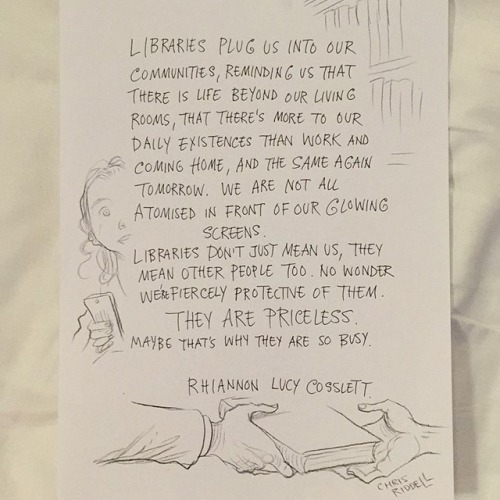 LIBRARIES PLUG US INTO OUR
COMMUNITIES, REMINDING US THAT
THERE IS LIFE BEYOND OUR LIVING
ROOMS, THAT THERE'S MORE TO OUR
DAILY EXISTENCES THAN WORK AND
COMING HOME, AND THE SAME AGAIN
TOMORROW. WE ARE NOT ALL
ATOMISED IN FRONT OF OUR GLOWING
SCREENS.
LIBRARIES DON'T JUST MEAN US, THEY
MEAN OTHER PEOPLE TOO. NO WONDER
WE'RE FIERCELY PROTECTIVE OF THEM.
THEY ARE PRICELESS.
MAYBE THAT'S WHY THEY ARE SO BUSY.
RHIANNON LUCY COSSLETT.
CHRIS
RIDDELL